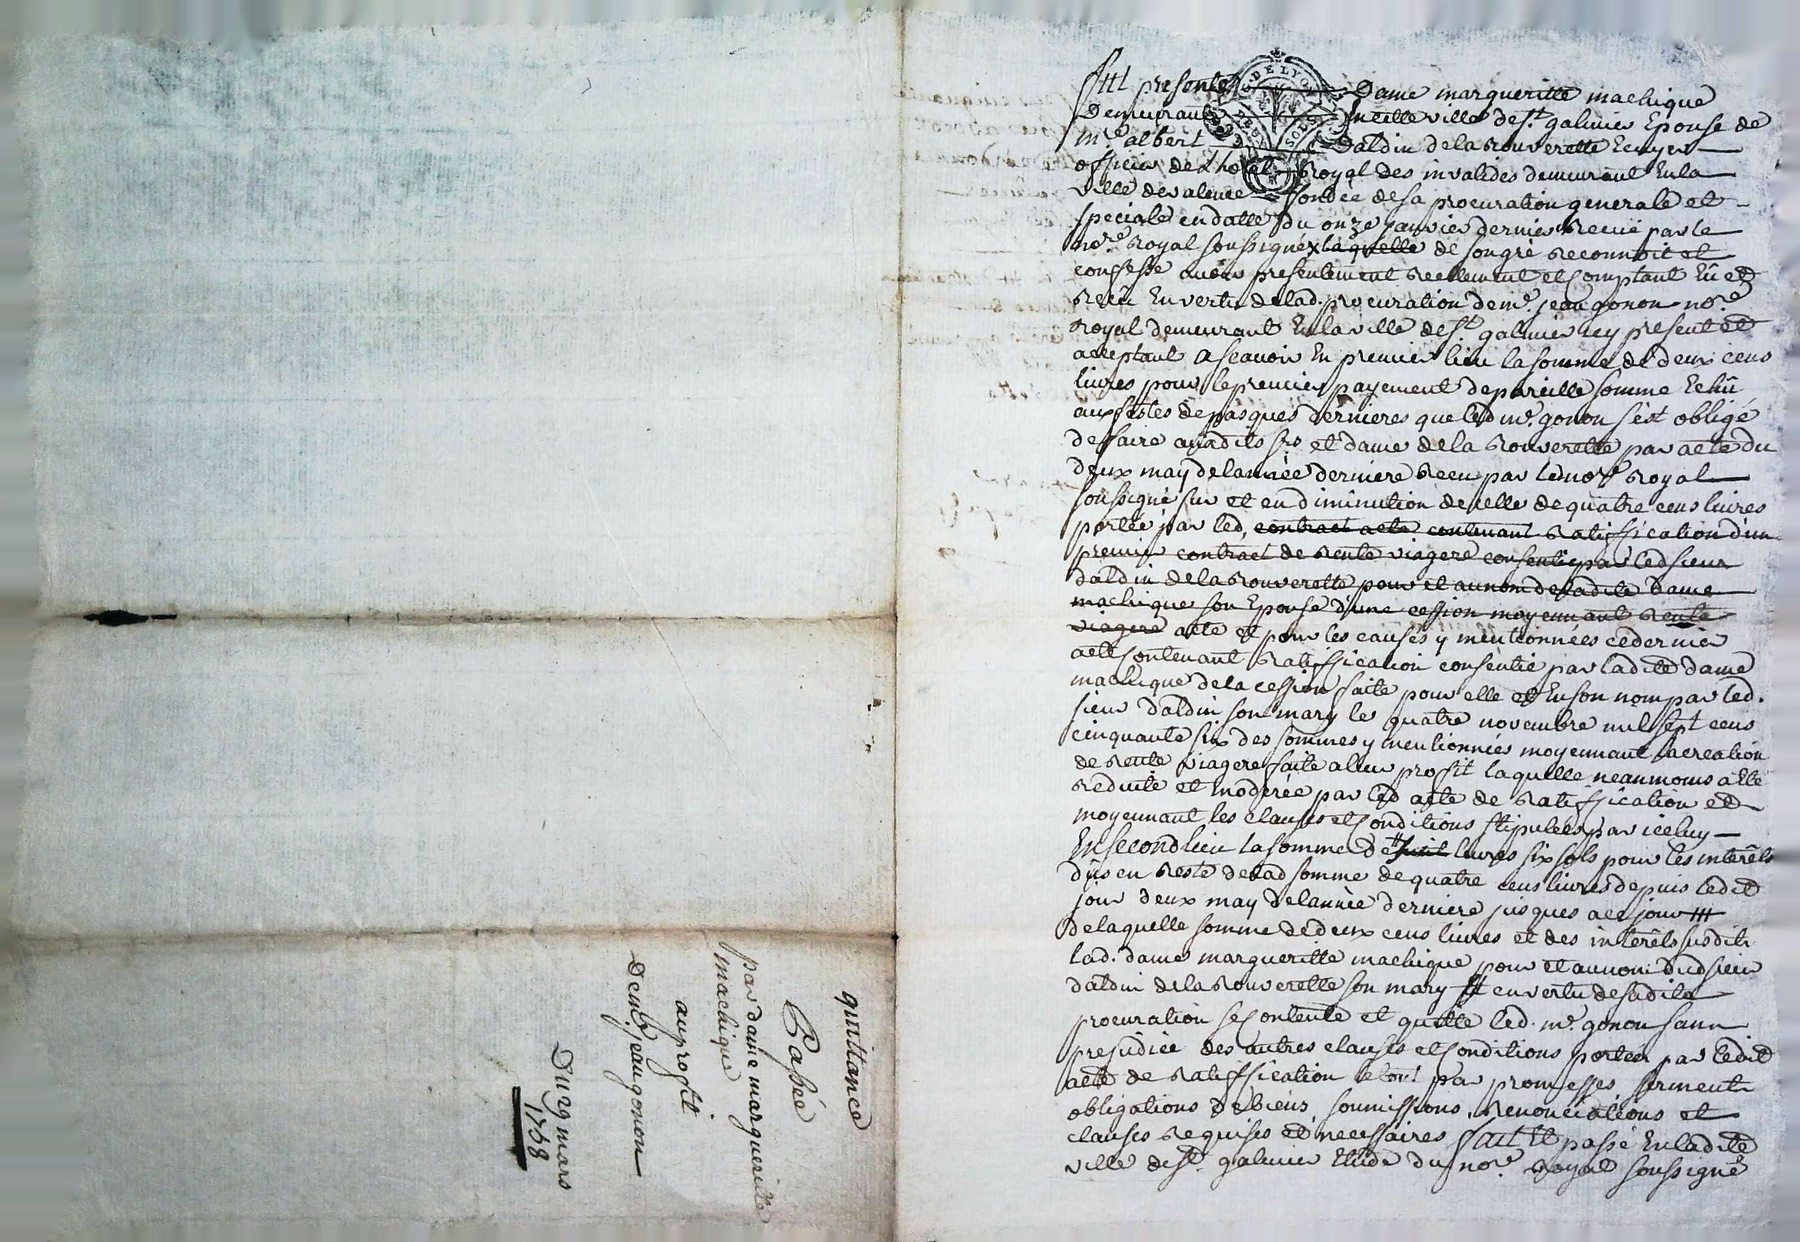 Fut presente Dame margueritte machique
Demeurant En cette ville de st. galmier Epouse de
mre. albert Daldin de la Rouverette Ecuyer
officier de L'hotel Royal des invalides demeurant En la
ville de valence fondée de sa procuration generale et
speciale en datte du onze janvier dernier Receüe par le
nore. Royal soussigné laquelle de son gré Reconnoit et
confesse avoir presentement Reellement et Comptant Eü et
Receu En vertu de lad. procuration de me. jean gonon nore.
Royal demeurant En la ville de st. galmier icy present et
acceptant a scavoir En premier lieu la somme de deux cens
livres pour le premier payement de pareille somme Echü
aux festes de pasques dernieres que led mr. gonon s'est obligé
de faire auxdits srs. et dame de la Rouverette par acte du
deux may de lannée derniere Receu par le nore. Royal
soussigné sur et en diminution de celle de quatre cens livres
portée par led. contract acte contenant Ratiffication d'un
premier contract de Rente viagere consentie par led sieur
daldin de la Rouverette pour et au nom de ladite Dame
machique son Epouse d'une cession moyennant Rente
viagere acte et pour les causes y mentionnées ce dernier
acte Contenant Ratiffication consentie par ladite dame
machique de la cession faite pour elle et En son nom par led.
sieur daldin son mary le quatre novembre mil sept cens
cinquante six des sommes y mentionnées moyennant la creation
de Rente viagere faite a leur profit laquelle neanmoins a Eté
Reduite et moderée par led acte de Ratiffication et
moyennant les clauses et Conditions stipulées par iceluy
En second lieu la somme de livres six sols pour les interêts
dus en Reste de lad somme de quatre cens livres depuis ledit
jour deux may de lannée derniere jusques a ce jour
de laquelle somme de deux cens livres et des interêts susdits
lad. dame margueritte machique pour et au nom dud sieur
daldin de la Rouverette son mary et en vertu de sadite
procuration se Contente et quitte led. mr. gonon sans
prejudice des autres clauses et Conditions portées par ledit
acte de Ratiffication le tout par promesses serment
obligations de biens, soumissions, Renonciations et
clauses Requises et necessaires fait Et passé En ladite
ville de st. galmier Etude du nore. Royal soussigné
G. DE LYON
DEUX SOLS
quittance
Passée
par dame margueritte
machique
au profit
De mr. jean gonon
Du 19 mars
1758